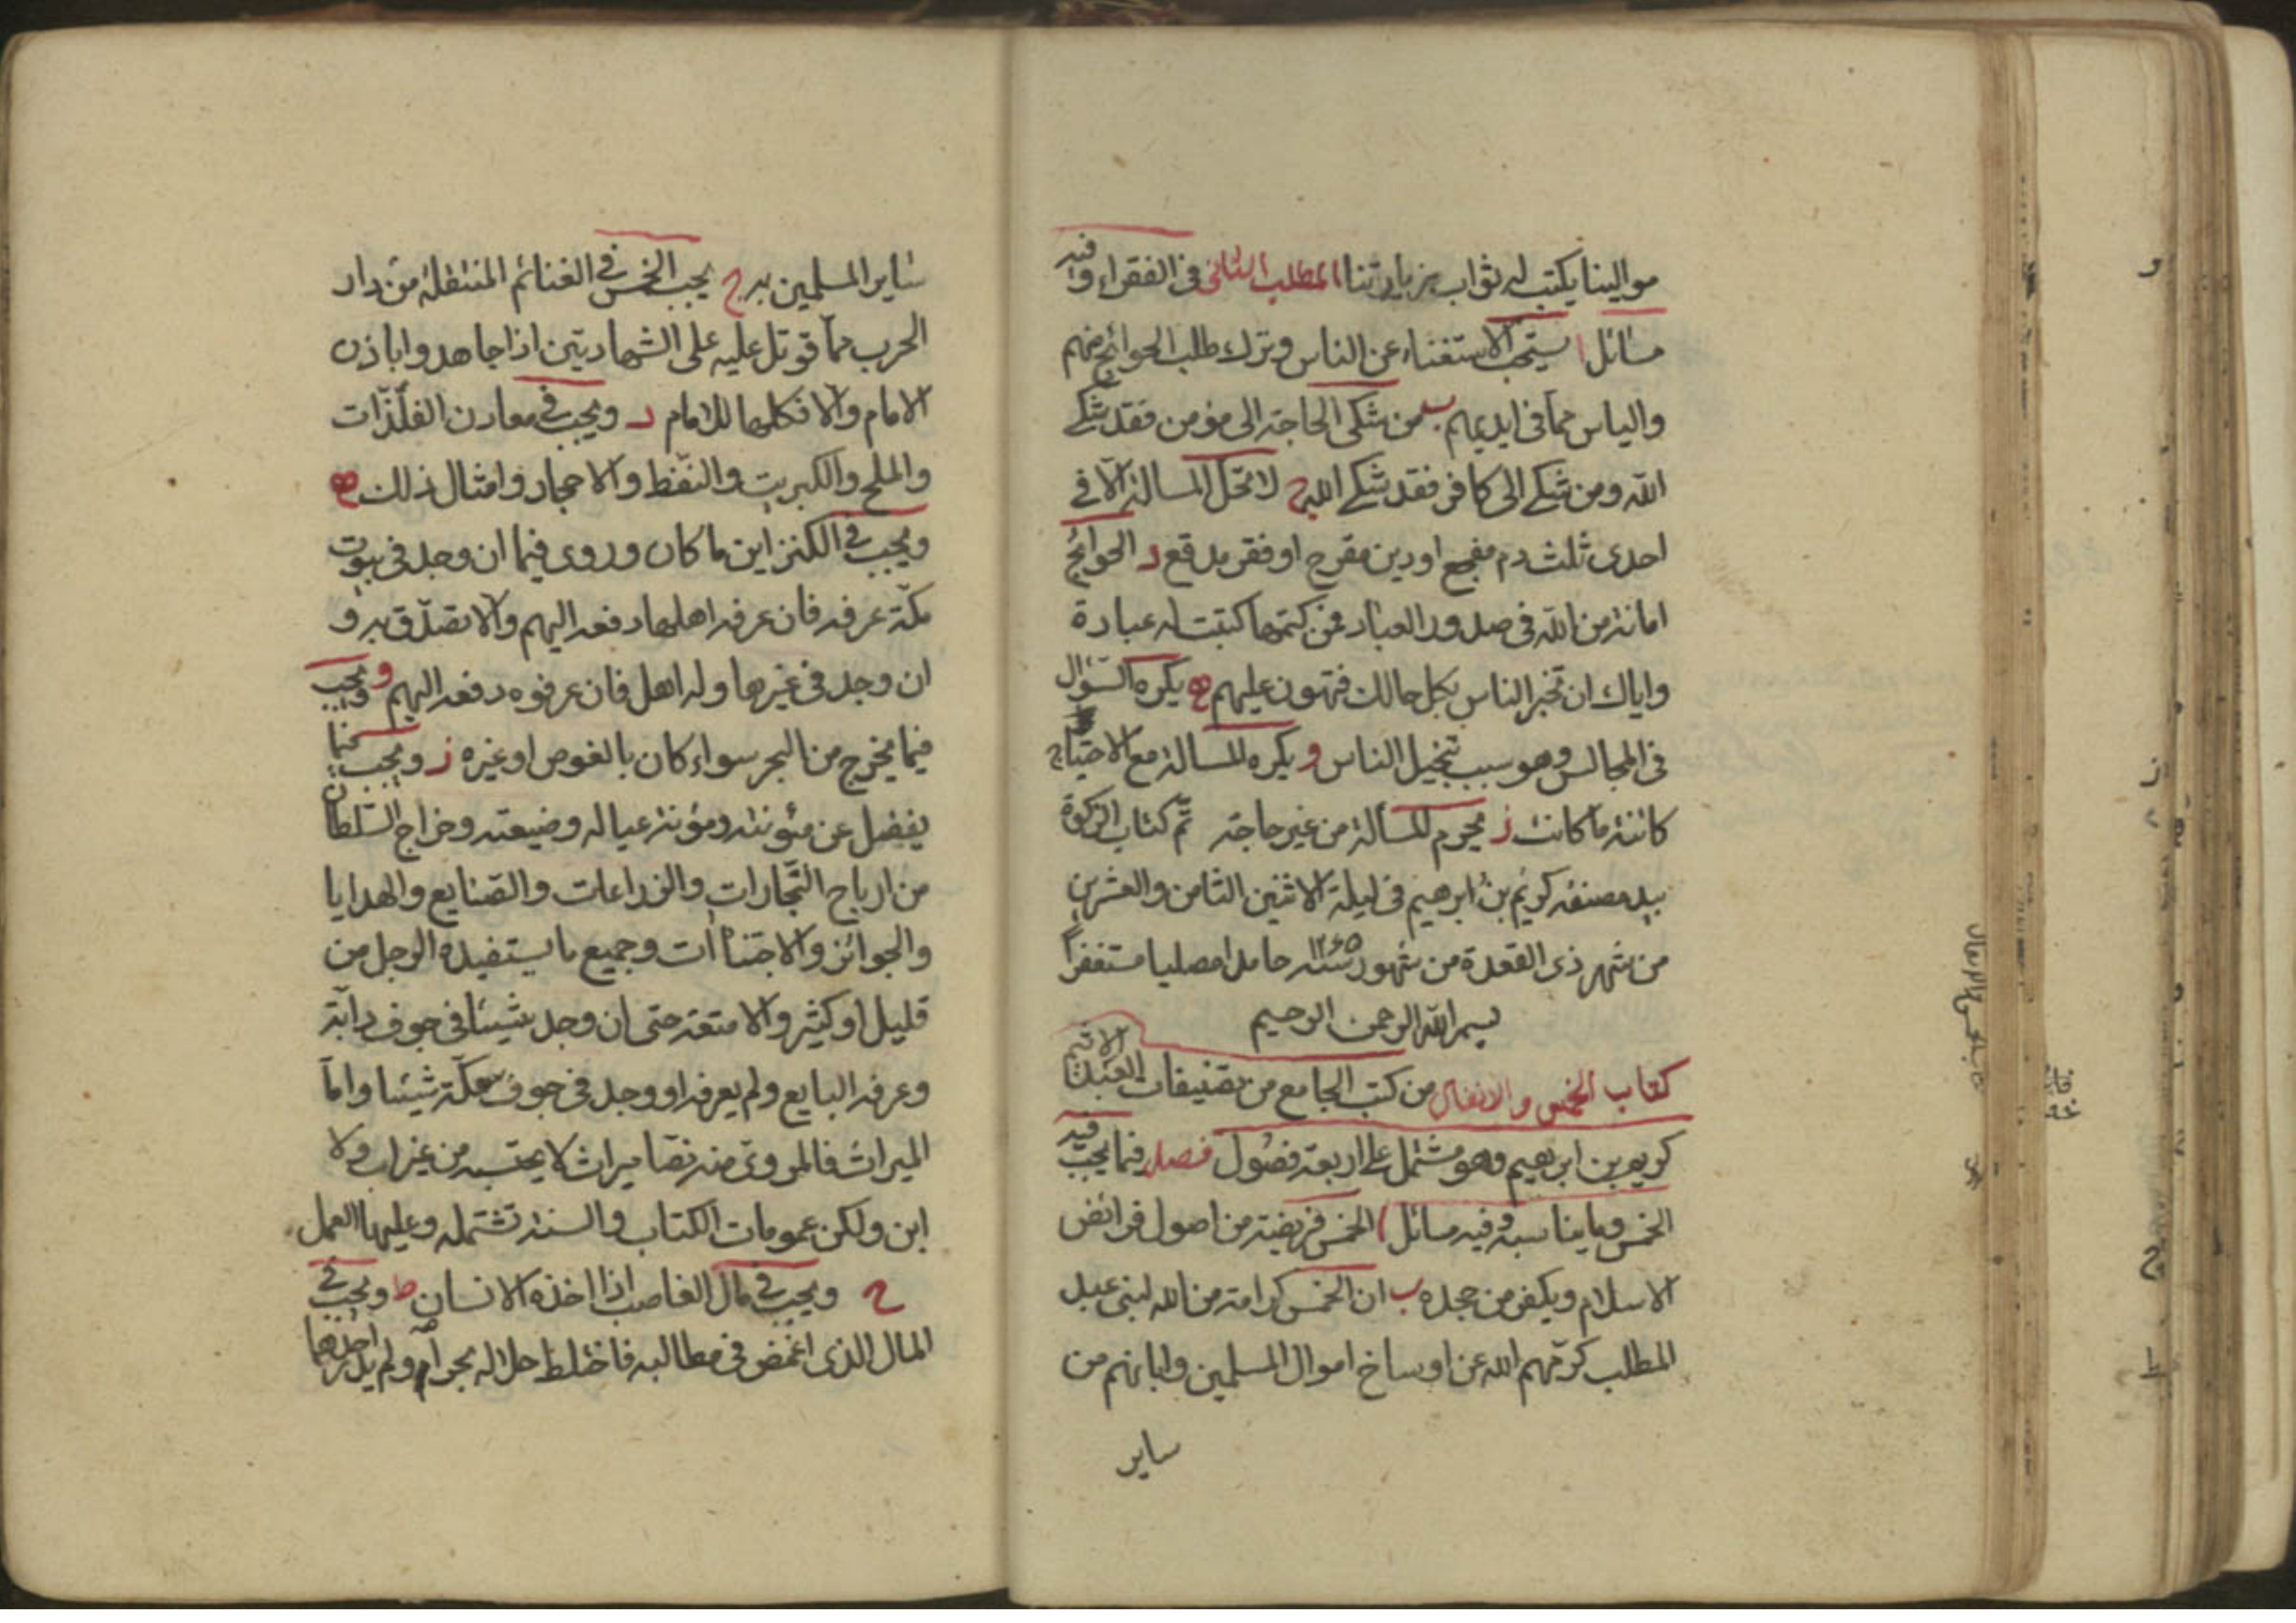 موالينا يكتب له ثواب زيارتنا المطلب الثانى فى الفقراء وفيه
مسائل ا يستحب الاستغناء عن الناس وترك طلب الحوائج منهم
والياس مما فى ايديهم ب من شكى الحاجة الى مؤمن فقد شكى
الله ومن شكى الى كافر فقد شكى الله ج لا تحل المسالة الا فى
احدى ثلث دم مفجع او دين مقرح او فقر مدقع د الحوائج
امانة من الله فى صدور العباد فمن كتمها كتبت له عبادة
واياك ان تخبر الناس بكل حالك فتهون عليهم ه يكره السؤال
فى المجالس وهو سبب تبخيل الناس و يكره المسالة مع الاحتياج
كائنة ما كانت ز يحرم المسألة من غير حاجة تم كتاب الزكوة
بيد مصنفه كريم بن ابرهيم فى ليلة الاثنين الثامن والعشرين
من شهر ذى القعدة من شهور سنة ١٢٦٥ حامدا مصليا مستغفرا
بسم الله الرحمن الرحيم
كتاب الخمس والانفال من كتب الجامع من تصنيفات العبد الاثيم
كريم بن ابرهيم وهو مشتمل على اربعة فصول فصل فيما يجب فيه
الخمس وما يناسبه وفيه مسائل ا الخمس فريضة من اصول فرائض
الاسلام ويكفر من جحده ب ان الخمس كرامة من الله لبنى عبد
المطلب كرمهم الله عن اوساخ اموال المسلمين وابانهم من
ساير
ساير المسلمين به ج يجب الخمس فى الغنائم المنتقلة من دار
الحرب مما قوتل عليه على الشهادتين اذا جاهدوا باذن
الامام والا فكلها للامام د ويجب فى معادن الفلزات
والملح والكبريت والنفط والاحجار وامثال ذلك ه
ويجب فى الكنز اين ما كان وروى فيما ان وجد فى بيوت
مكة عرفه فان عرفه اهلها دفعه اليهم والا تصدق به و
ان وجد فى غيرها وله اهل فان عرفوه دفعه اليهم و ويجب
فيما يخرج من البحر سواء كان بالغوص او غيره ز ويجب فيما
يفضل عن مئونته ومؤنة عياله وضيعته وخراج السلطان
من ارباح التجارات والزراعات والصنايع والهدايا
والجوائز والاجتناآت وجميع ما يستفيده الرجل من
قليل او كثير والامتعة حتى ان وجد شيئا فى جوف دابة
وعرفه البايع ولم يعرفه او وجد فى جوف سمكة شيئا واما
الميراث فالمروى منه نصا ميراث لا يحتسبه من غير اب ولا
ابن ولكن عمومات الكتاب والسنة تشتمله وعليها العمل
ح ويجب فى مال الغاصب اذا اخذه الانسان ط ويجب فى
المال الذى اغمض فى مطالبه فاختلط حلاله بحرامه ولم يدر احدهما